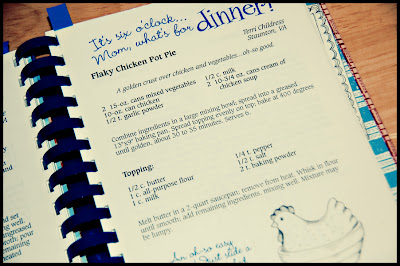 It's six o'clock...
Mom, what's for dinner?!
Terri Childress
Staunton, VA
Flaky Chicken Pot Pie
A golden crust over chicken and vegetables...oh so good.
2 15-oz. cans mixed vegetables
10-oz. can chicken
1/2 t. garlic powder
1/2 c. milk
2 10-3/4 oz. cans cream of
chicken soup
Combine ingredients in a large mixing bowl; spread into a greased
13"x9" baking pan. Spread topping evenly on top; bake at 400 degrees
until golden, about 30 to 35 minutes. Serves 6.
Topping:
1/2 c. butter
1 c. all-purpose flour
1 c. milk
1/4 t. pepper
1/2 t. salt
2 t. baking powder
Melt butter in a 2-quart saucepan; remove from heat. Whisk in flour
until smooth; add remaining ingredients, mixing well. Mixture may
be lumpy.
An oh-so easy
slide a
and set
ning well.
ungreased
mooth; pour
emaining
reated